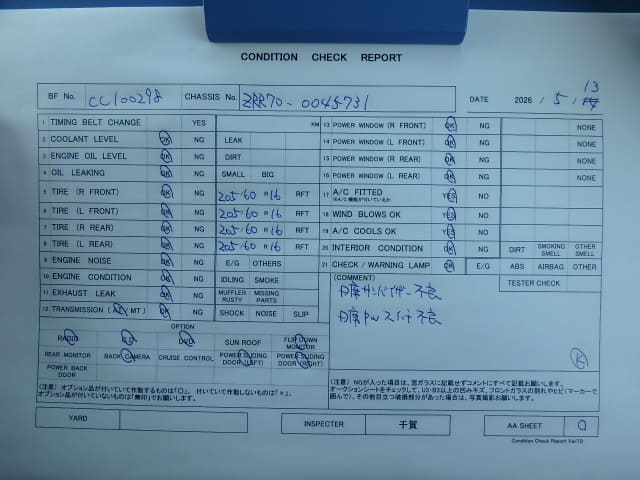 CONDITION CHECK REPORT
BF No. CC100298 CHASSIS No. ZRR70-0045731 DATE 2026 . 5 . 13
1 TIMING BELT CHANGE YES KM
2 COOLANT LEVEL OK NG LEAK
3 ENGINE OIL LEVEL OK NG DIRT
4 OIL LEAKING OK NG SMALL BIG
5 TIRE (R FRONT) OK NG 205/60 R16 RFT
6 TIRE (L FRONT) OK NG 205/60 R16 RFT
7 TIRE (R REAR) OK NG 205/60 R16 RFT
8 TIRE (L REAR) OK NG 205/60 R16 RFT
9 ENGINE NOISE OK NG E/G OTHERS
10 ENGINE CONDITION OK NG IDLING SMOKE
11 EXHAUST LEAK OK NG MUFFLER RUSTY MISSING PARTS
12 TRANSMISSION (AT, MT) OK NG SHOCK NOISE SLIP
OPTION
RADIO CD DVD SUN ROOF FLIP DOWN MONITOR
REAR MONITOR BACK CAMERA CRUISE CONTROL POWER SLIDING DOOR (LEFT) POWER SLIDING DOOR (RIGHT)
POWER BACK DOOR
(注意) オプション品が付いていて作動するものは「〇」、付いていて作動しないものは「×」、
オプション品が付いていないものは「無印」でお願いします。
13 POWER WINDOW (R FRONT) OK NG NONE
14 POWER WINDOW (L FRONT) OK NG NONE
15 POWER WINDOW (R REAR) OK NG NONE
16 POWER WINDOW (L REAR) OK NG NONE
17 A/C FITTED YES NO
※A/C機能が付いているか
18 WIND BLOWS OK YES NO
19 A/C COOLS OK YES NO
20 INTERIOR CONDITION OK NG DIRT SMOKING SMELL OTHER SMELL
21 CHECK / WARNING LAMP OK E/G ABS AIRBAG OTHER
(COMMENT) TESTER CHECK
サンバイザー不良
PWスイッチ不良
(注意) NGが入った項目は、窓ガラスに記載せずコメントにすべて記載お願いします。
オークションシートをチェックして、U3・B3以上の凹みキズ、フロントガラスの割れやヒビ(マーカーで
囲んで)、その他目立つ破損部分があった場合は、写真撮影お願いします。
YARD INSPECTER 千賀 AA SHEET
Condition Check Report Ver7.0